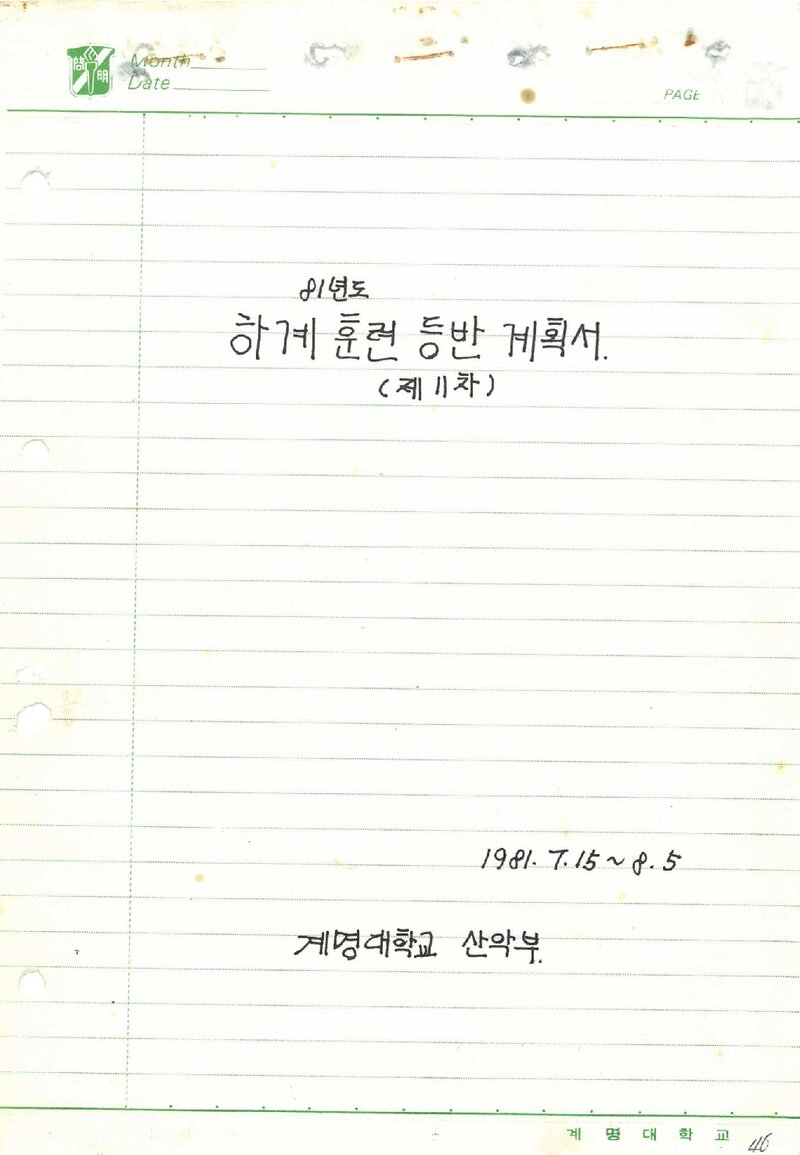 啓明
Month
Date
PAGE
81년도
하계 훈련 등반 계획서.
(제 11차)
1981. 7. 15 ~ 8. 5
계명대학교 산악부.
계명대학교
46